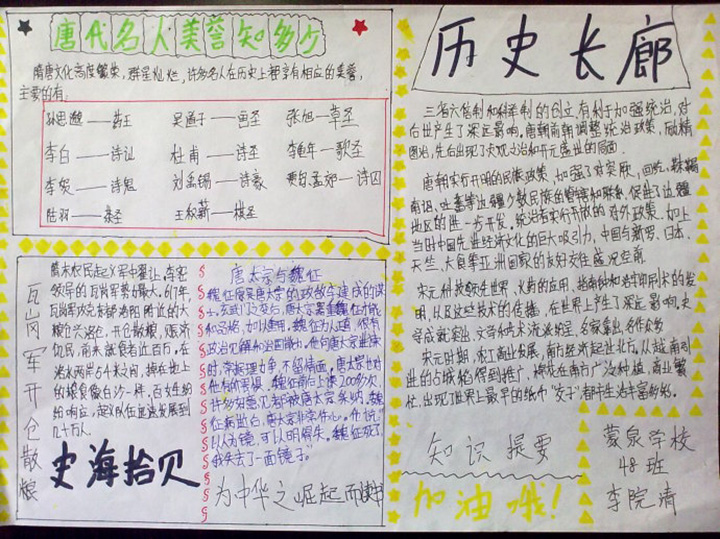 唐代名人美誉知多少
隋唐文化高度繁荣，群星灿烂，许多名人在历史上都享有相应的美誉，
主要的有
孙思邈——药王 吴道子——画圣 张旭——草圣
李白——诗仙 杜甫——诗圣 李龟年——歌圣
李贺——诗鬼 刘禹锡——诗豪 贾岛孟郊——诗囚
陆羽——茶圣 王积薪——棋圣
瓦岗军开仓散粮
隋末农民起义军中翟让、李密
领导的瓦岗军势力最大。617年，
瓦岗军攻克东都洛阳附近的大
粮仓兴洛仓，开仓散粮，赈济
饥民，前来就食者近百万。在
洛水两岸
的粮食像白沙一样，百姓纷
纷响应，起义队伍迅速发展到
几十万人。
史海拾贝
唐太宗与魏征
魏征
和品格，
政治见解和治国能力，他向唐太宗进谏
时，常据理力争，不留情面，唐太宗也对
他有所畏惧。魏征前后上谏200多次，
许多意见都被唐太宗采纳，魏
征病逝后，唐太宗非常伤心。他说“
以人为镜，可以明得失，魏征死了，
我失去了一面镜子。
为中华之崛起而读书
历史长廊
三省六部制和科举制的创立，有利于加强统治，对
后世产生了深远影响。唐朝前期调整统治政策，励精
图治，先后出现了贞观之治和开元盛世的局面。
唐朝实行开明的民族政策，加强了对突厥、回纥、靺鞨
南诏、吐蕃等边疆少数民族的管辖和联系，促进了边疆
地区的进一步开发。统治者实行开放的对外政策，加上
当时中国先进经济文化的巨大吸引力，中国与新罗、日本、
天竺、大食等亚洲国家的友好交往盛况空前。
宋元科技领先世界，火药的应用、指南针和活字印刷术的发
明，以及这些技术的传播，在世界上产生了深远影响。史
学成就突出，文学和艺术流派纷呈，名家辈出，名作众多
宋元时期，农工商业发展，南方经济超过北方。从越南引
进的占城稻得到推广、棉花在南方广泛种植，商业繁
忙，出现了世界上最早的纸币“交子”都市生活丰富多彩。
知识提要
加油哦！
蒙泉学校
48班
李院清